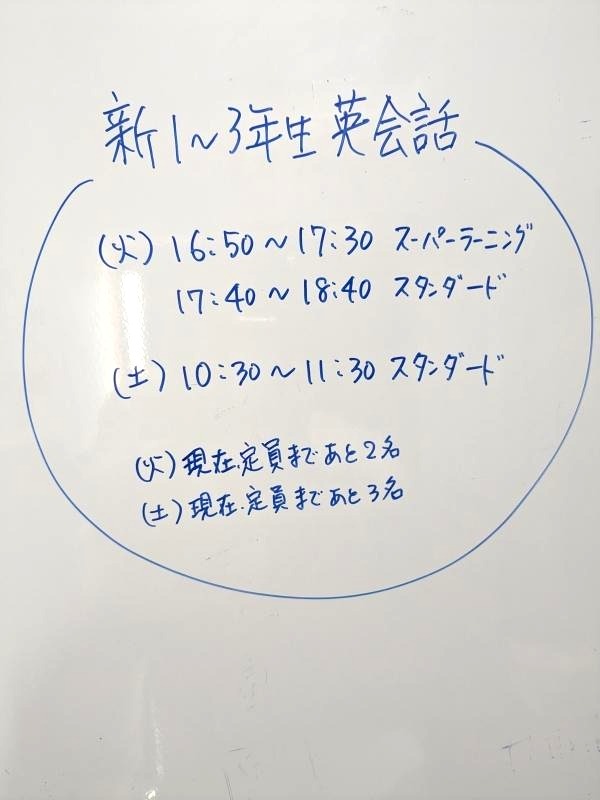 新1~3年生 英会話
(火) 16:50~17:30 スーパーラーニング
17:40~18:40 スタンダード
(土) 10:30~11:30 スタンダード
(火) 現在、定員まであと2名
(土) 現在、定員まであと3名